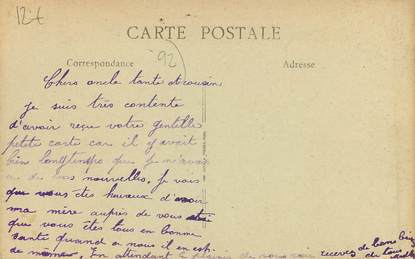 12 t
CARTE POSTALE
Correspondance
92
Adresse:
Chers oncle tante et cousin
je suis très contente
d'avoir reçue votre gentille
petite carte car il y avait
bien longtemps que je n'avai
eu de vos nouvelles. Je vois
que vous êtes heureux d'avoir
ma mère auprès de vous
que vous êtes tous en bonne
santé quand a nous il en est
de même. En attendant le plaisir de vous voir recevez de bons
de tous